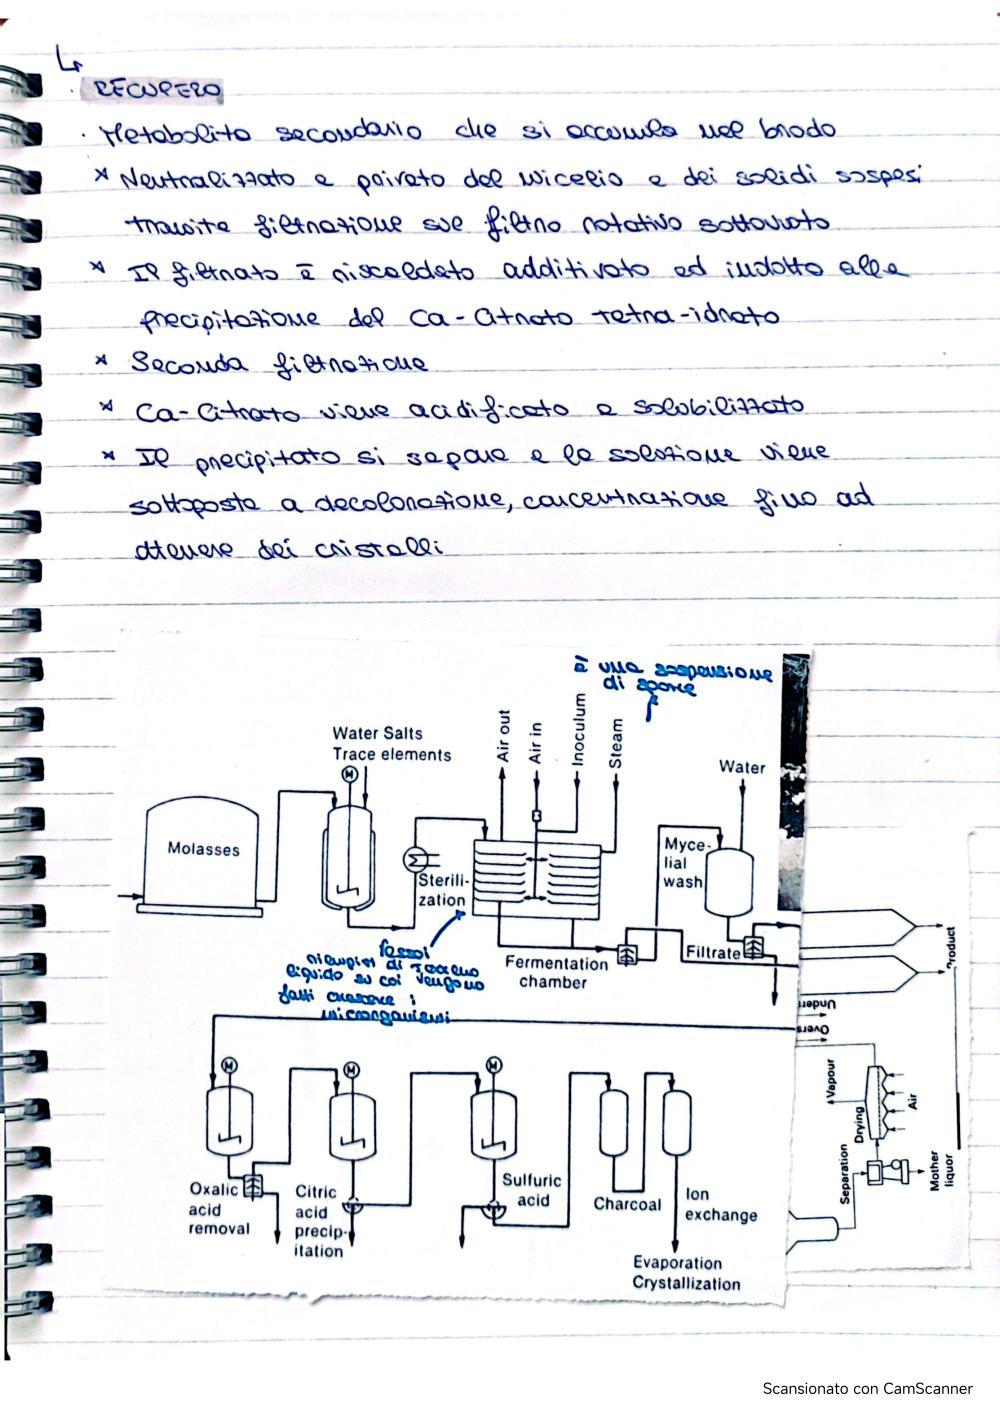 RECUPERO
· Metabolita secondario che si accumula nel brodo
* Neutralizzato e privato del micelio e dei solidi sospesi
tramite filtrazione sul filtro rotativo sottovuoto
* Il filtrato è riscaldato additivato ed indotto alla
precipitazione del Ca-Citrato tetra-idrato
* Seconda filtrazione
* Ca-Citrato viene acidificato e solubilizzato
* Il precipitato si separa e la soluzione viene
sottoposta a decolorazione, concentrazione fino ad
ottenere dei cristalli
è una sospensione
di spore
Water Salts
Trace elements
Air out
Air in
Inoculum
Steam
Water
M
Molasses
Myce-
lial
wash
Sterili-
zation
Fermentation
chamber
Filtrate
fassoi
riempiti di terreno
liquido su cui vengono
fatti crescere i
microrganismi
Product
Under
Overs
Vapour
Drying
Air
Separation
Mother
liquor
M
M
M
Oxalic
acid
removal
Citric
acid
precip-
itation
Sulfuric
acid
Charcoal
Ion
exchange
Evaporation
Crystallization
Scansionato con CamScanner